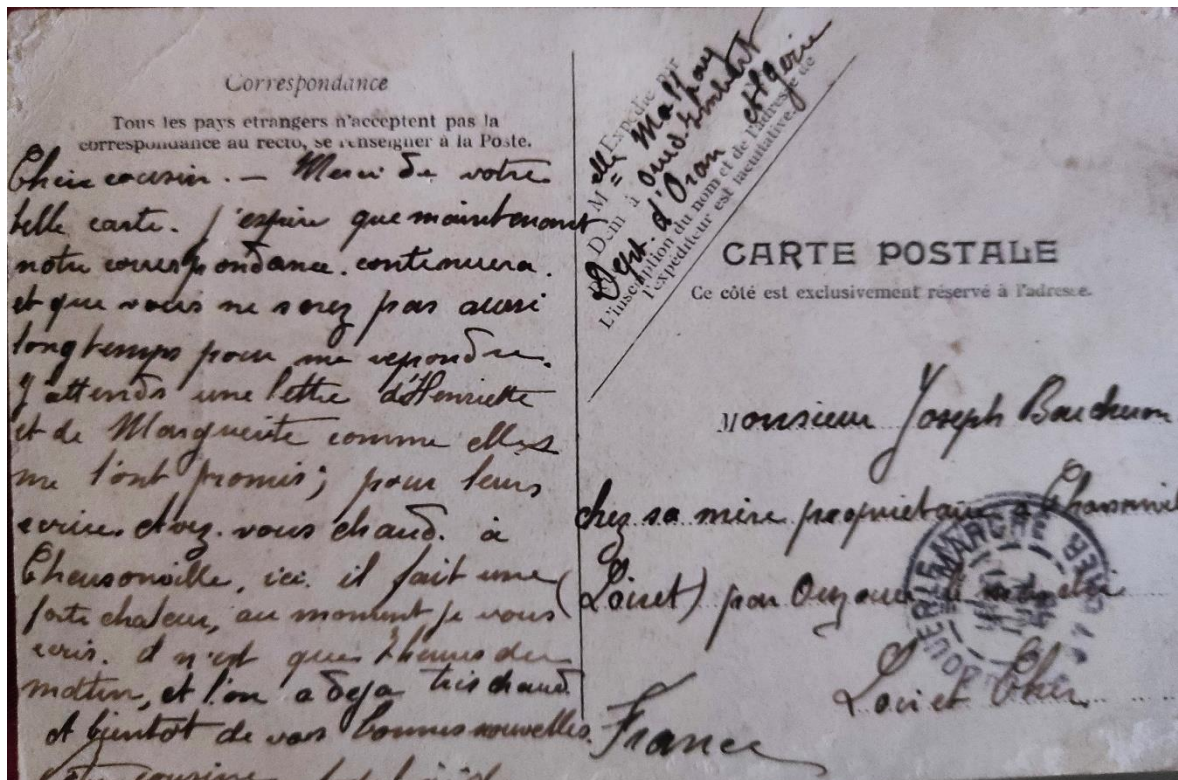 Correspondance
Tous les pays etrangers n'acceptent pas la
correspondance au recto, se renseigner à la Poste.
Cher cousin. — Merci de votre
belle carte. J'espère que maintenant
notre correspondance. continuera.
et que vous ne serez pas aussi
longtemps pour me repondre.
J'attends une lettre d'Henriette
et de Marguerite comme elles
me l'ont promis; pour leurs
ecrire. Avez. vous chaud. à
Chausonville, ici. il fait une
forte chaleur, au moment je vous
ecris. il n'est que heures du
matin, et l'on a deja très chaud.
et bientot de vos bonnes nouvelles.
cousine
Expédié par
M elle
Dem à
Dept. d'Oran Algerie
L'inscription du nom et de l'adresse de
l'expéditeur est facultative.
CARTE POSTALE
Ce côté est exclusivement réservé à l'adresse.
Monsieur Joseph Baucheron
chez sa mère propriétaire à
(Loiret) par Ouzouer le marché
Loir et Cher
France
OUZOUER LE MARCHE
LOIR ET CHER